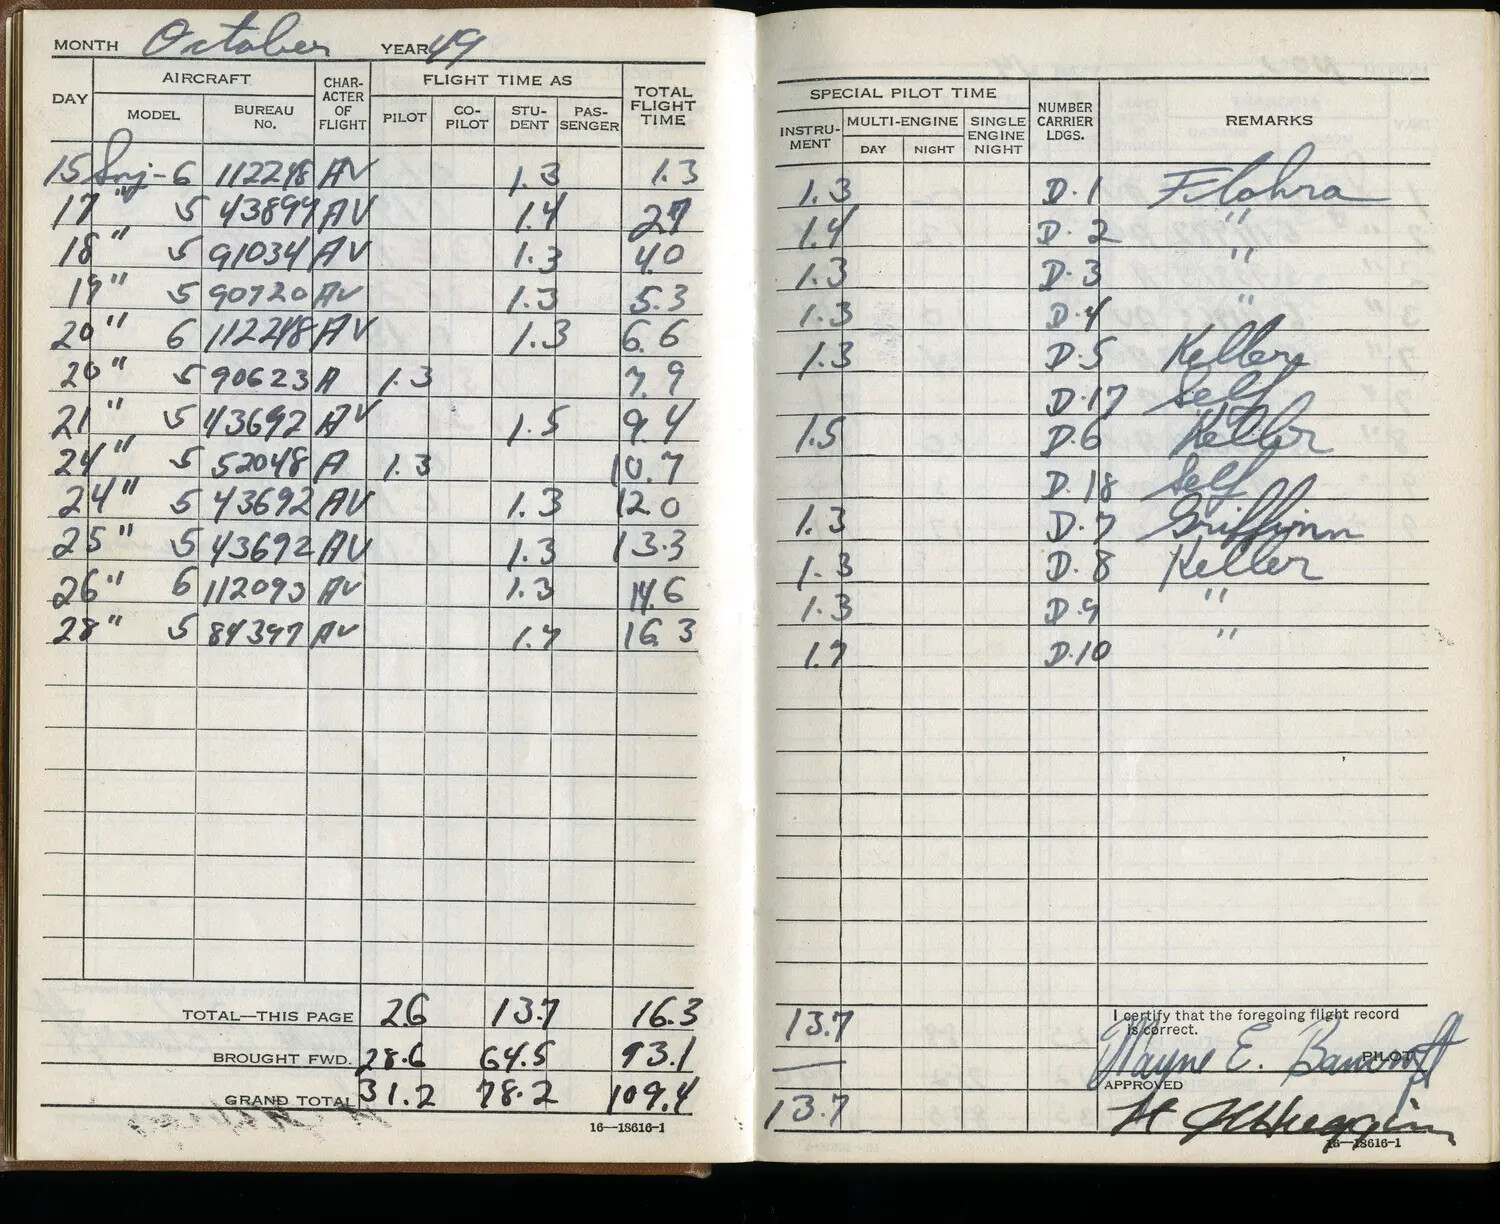 MONTH October YEAR 49
DAY AIRCRAFT CHAR- ACTER OF FLIGHT FLIGHT TIME AS TOTAL FLIGHT TIME
MODEL BUREAU NO. PILOT CO- PILOT STU- DENT PAS- SENGER
15 Snj-6 112248 AV 1.3 1.3
17 " 5 43899 AV 1.4 2.7
18 " 5 91034 AV 1.3 4.0
19 " 5 90720 AV 1.3 5.3
20 " 6 112248 AV 1.3 6.6
20 " 5 90623 A 1.3 7.9
21 " 5 43692 AV 1.5 9.4
24 " 5 52048 A 1.3 10.7
24 " 5 43692 AV 1.3 12.0
25 " 5 43692 AV 1.3 13.3
26 " 6 112093 AV 1.3 14.6
28 " 5 84397 AV 1.7 16.3
TOTAL—THIS PAGE 2.6 13.7 16.3
BROUGHT FWD. 28.6 64.5 93.1
GRAND TOTAL 31.2 78.2 109.4
16—18616-1
SPECIAL PILOT TIME NUMBER CARRIER LDGS. REMARKS
INSTRU- MENT MULTI-ENGINE SINGLE ENGINE NIGHT
DAY NIGHT
1.3 D.1 Flohra
1.4 D.2 "
1.3 D.3 "
1.3 D.4 "
1.3 D.5 Keller
D.17 Self
1.5 D.6 Keller
D.18 Self
1.3 D.7 Griffinn
1.3 D.8 Keller
1.3 D.9 "
1.7 D.10 "
13.7 I certify that the foregoing flight record
is correct.
— Wayne E. Bancroft PILOT
APPROVED
13.7
16—18616-1